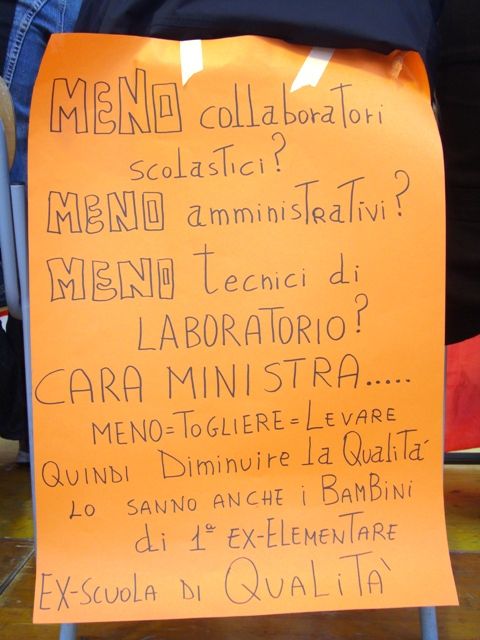 MENO collaboratori
scolastici?
MENO amministrativi?
MENO tecnici di
LABORATORIO?
CARA MINISTRA.....
MENO=TOGLIERE=LEVARE
QUINDI Diminuire la Qualità
LO SANNO ANCHE i BAMBiNi
di 1ª EX-ELEMENTARE
EX-SCUOLA DI QUALITÀ